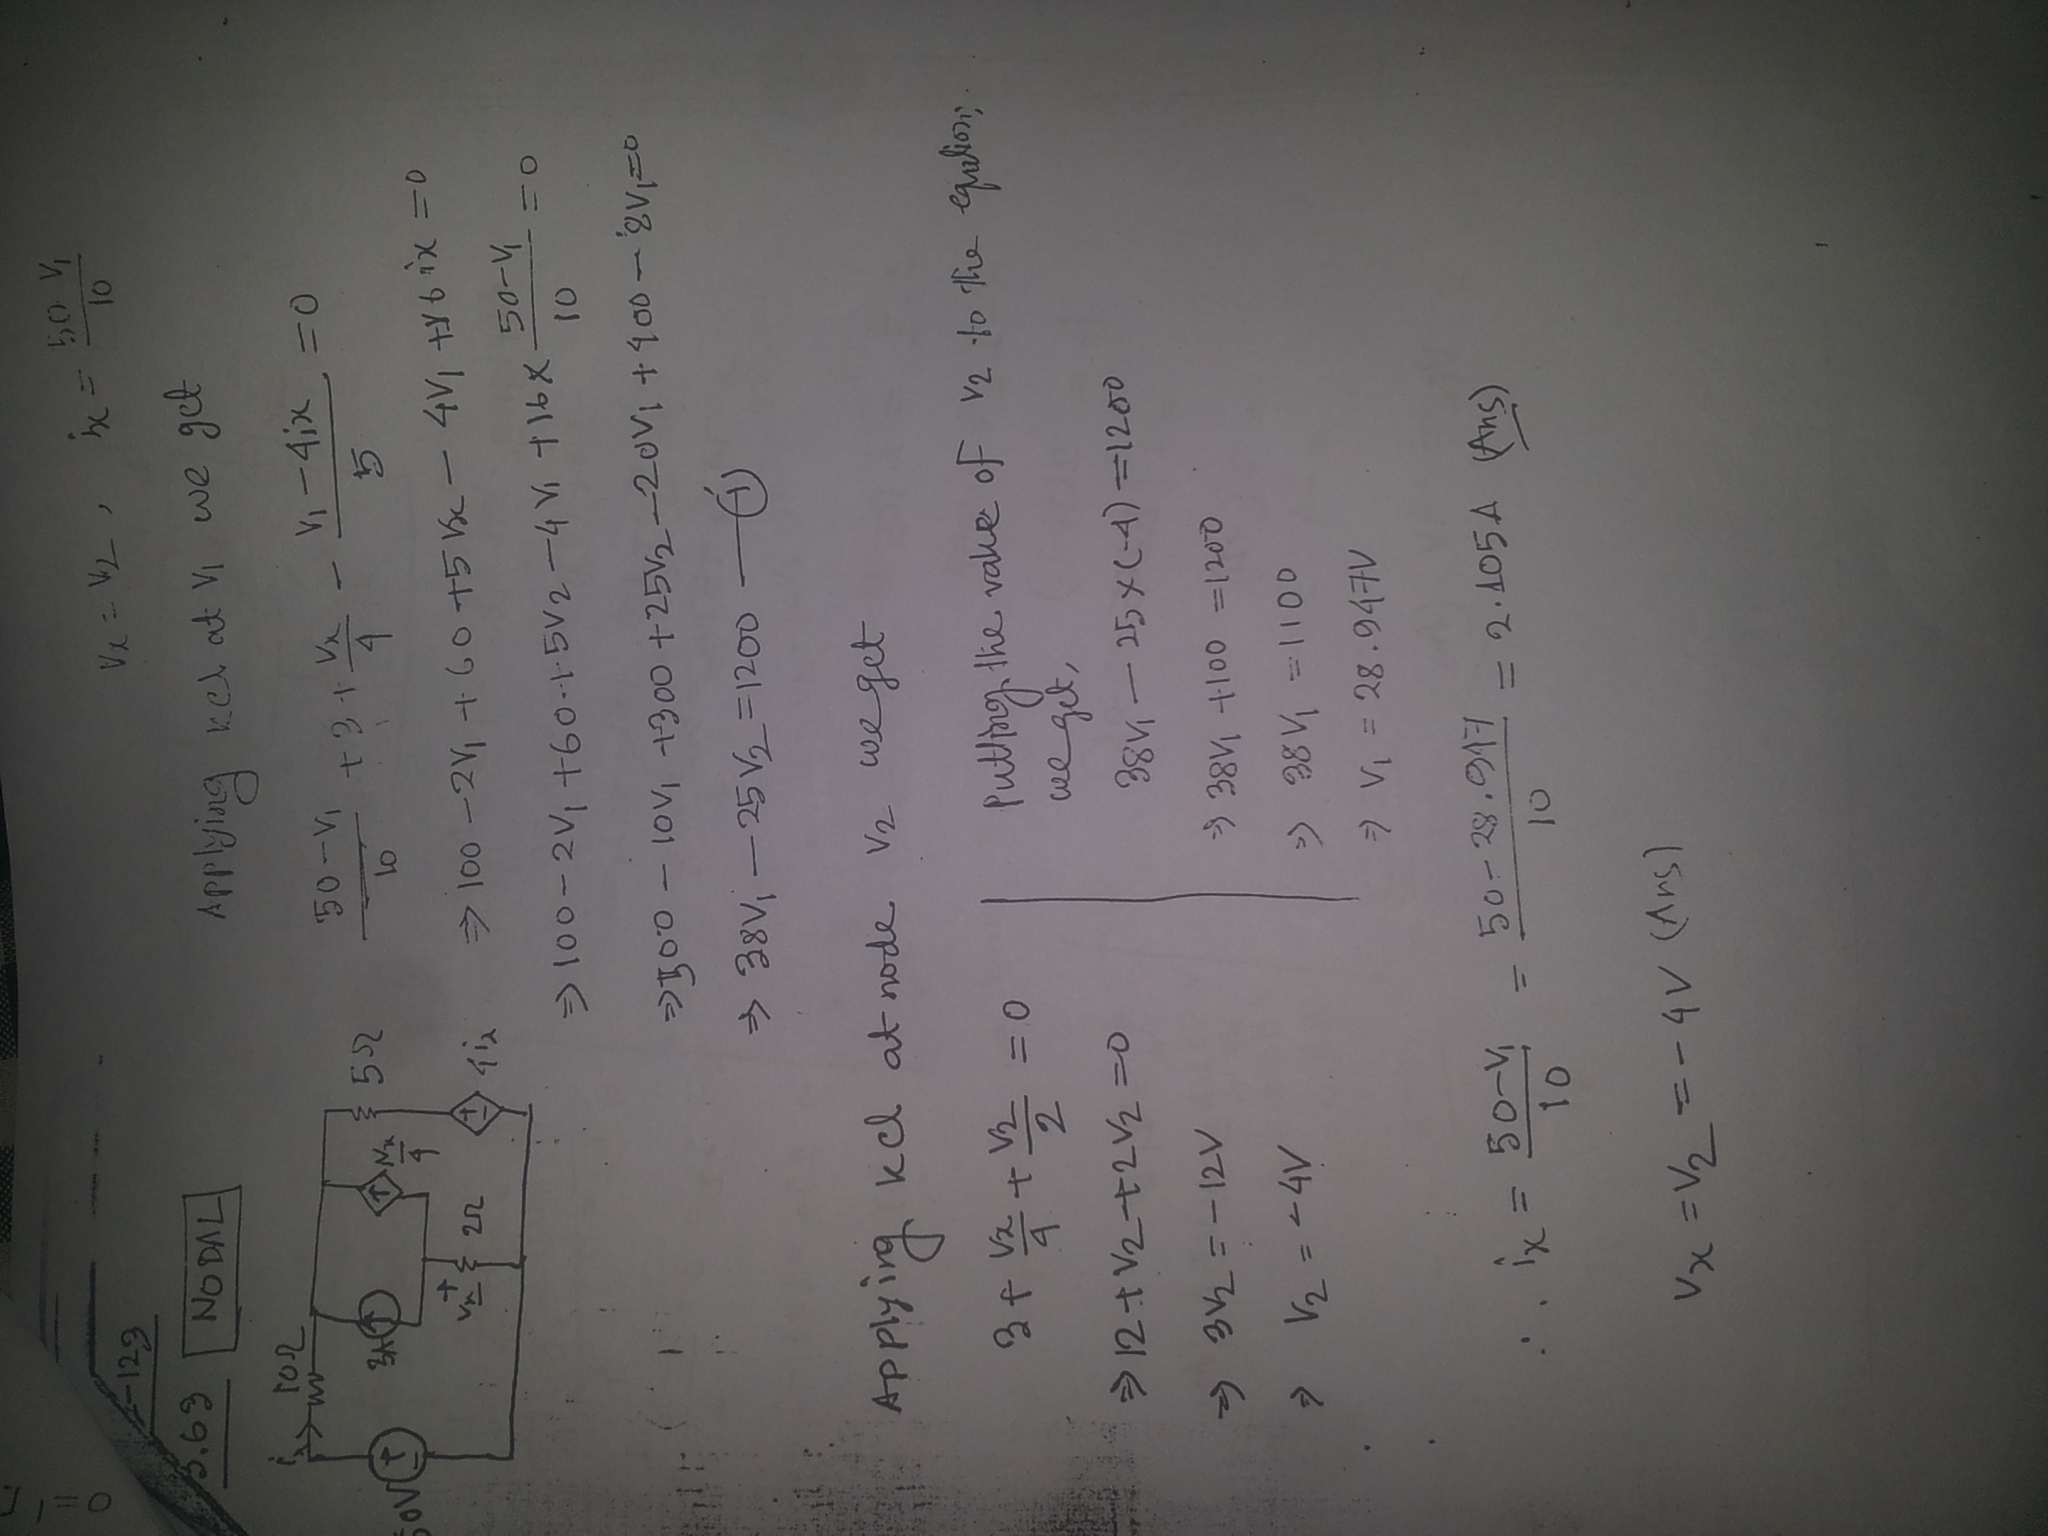 -123
3.63 NODAL
Vx = V2 , ix = 50 V1 / 10
Applying kcl at V1 we get
ix 10Ω
50V 3A Vx/4 5Ω
Vx 2Ω 4ix
(50-V1)/10 + 3 + Vx/4 - (V1-4ix)/5 = 0
⇒ 100 - 2V1 + 60 + 5Vx - 4V1 + 16ix = 0
⇒ 100 - 2V1 + 60 + 5V2 - 4V1 + 16 × (50-V1)/10 = 0
⇒ 500 - 10V1 + 300 + 25V2 - 20V1 + 400 - 8V1 = 0
⇒ 38V1 - 25V2 = 1200 — (i)
Applying kcl at node V2 we get
3 + Vx/4 + V2/2 = 0
⇒ 12 + V2 + 2V2 = 0
⇒ 3V2 = -12V
⇒ V2 = -4V
Putting the value of V2 to the
we get,
38V1 - 25×(-4) = 1200
⇒ 38V1 + 100 = 1200
⇒ 38V1 = 1100
⇒ V1 = 28.947V
∴ ix = (50-V1)/10 = (50-28.947)/10 = 2.105A (Ans)
Vx = V2 = -4V (Ans)